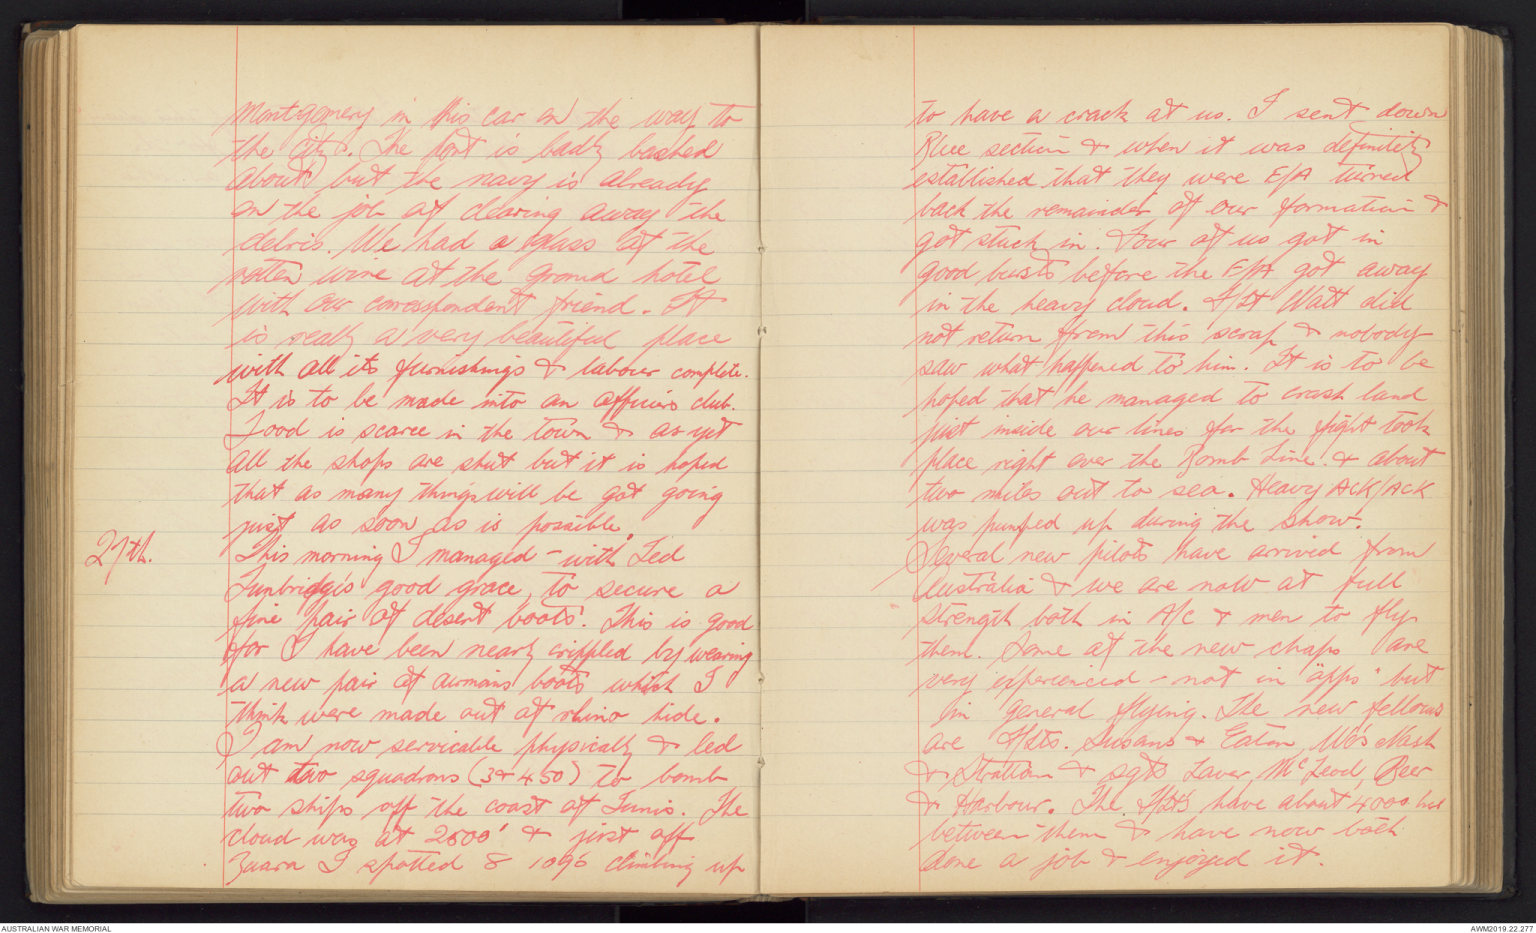 Montgomery in his car on the way to
the city. The port is badly bashed
about but the navy is already
on the job of clearing away the
debris. We had a glass of the
rotten wine at the Grand hotel
with our correspondent friend. It
is really a very beautiful place
with all its furnishings & labour complete.
It is to be made into an officers club.
Food is scarce in the town & as yet
all the shops are shut but it is hoped
that as many things will be got going
just as soon as is possible.
27th.
This morning I managed - with Ted
Tunbridge's good grace, to secure a
fine pair of desert boots. This is good
for I have been nearly crippled by wearing
a new pair of airmans boots which I
think were made out of rhino hide.
I am now servicable physically & led
out two squadrons (3 & 450) to bomb
two ships off the coast of Tunis. The
cloud was at 2500' & just off
Zuara I spotted 8 109s climbing up
to have a crack at us. I sent down
Blue section & when it was definitely
established that they were E/A turned
back the remainder of our formation &
got stuck in. Four of us got in
good busts before the E/A got away
in the heavy cloud. F/Lt Watt did
not return from this scrap & nobody
saw what happened to him. It is to be
hoped that he managed to crash land
just inside our lines for the fight took
place right over the Bomb Line. & about
two miles out to sea. Heavy ACK/ACK
was pumped up during the show.
Several new pilots have arrived from
Australia & we are now at full
strength both in A/C & men to fly
them. Some of the new chaps are
very experienced - not in "opps" but
in general flying. The new fellows
are F/Lts. Susans & Eaton, W/Os Nash
& Stratton & sgts Laver, McLeod, Beer
& Harbour. The F/Lts have about 4000 hrs
between them & have now both
done a job & enjoyed it.
AUSTRALIAN WAR MEMORIAL
AWM2019.22.277